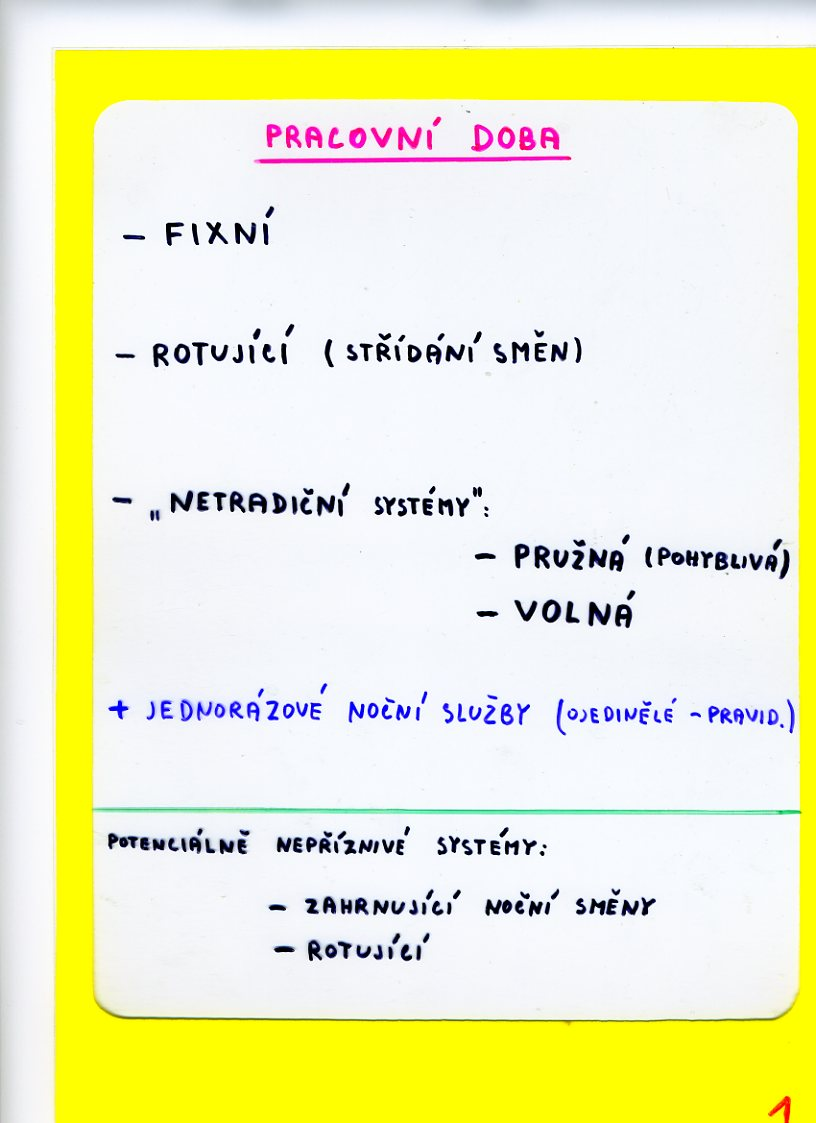 PRACOVNÍ DOBA
- FIXNÍ
- ROTUJÍCÍ (STŘÍDÁNÍ SMĚN)
- „NETRADIČNÍ SYSTÉMY":
- PRUŽNÁ (POHYBLIVÁ)
- VOLNÁ
+ JEDNORÁZOVÉ NOČNÍ SLUŽBY (OJEDINĚLÉ - PRAVID.)
POTENCIÁLNĚ NEPŘÍZNIVÉ SYSTÉMY:
- ZAHRNUJÍCÍ NOČNÍ SMĚNY
- ROTUJÍCÍ
1